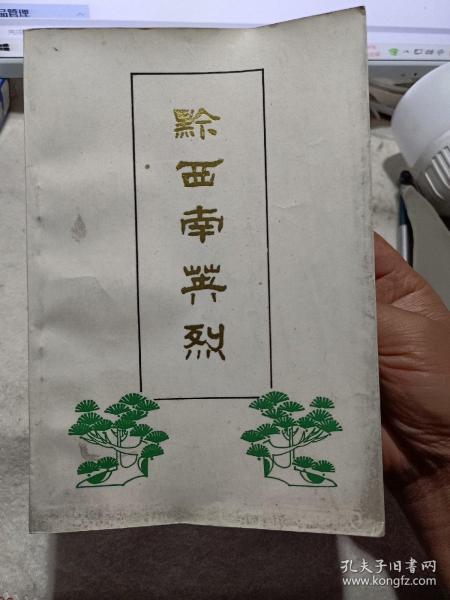 品管理
黔西南英烈
孔夫子旧书网
www.kongfz.com